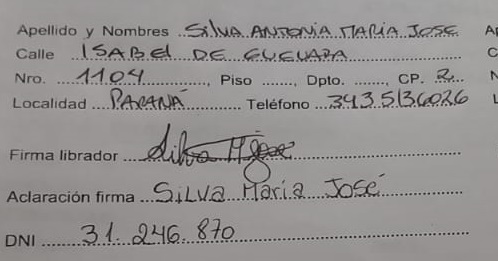 Apellido y Nombres SILVA ANTONIA MARIA JOSE
Calle ISABEL DE GUEVARA
Nro. 1104, Piso ......, Dpto. ......, CP. 2
Localidad PARANÁ Teléfono 3435136026
Firma librador Silva MJose
Aclaración firma SiLVa María José
DNI 31.246.870